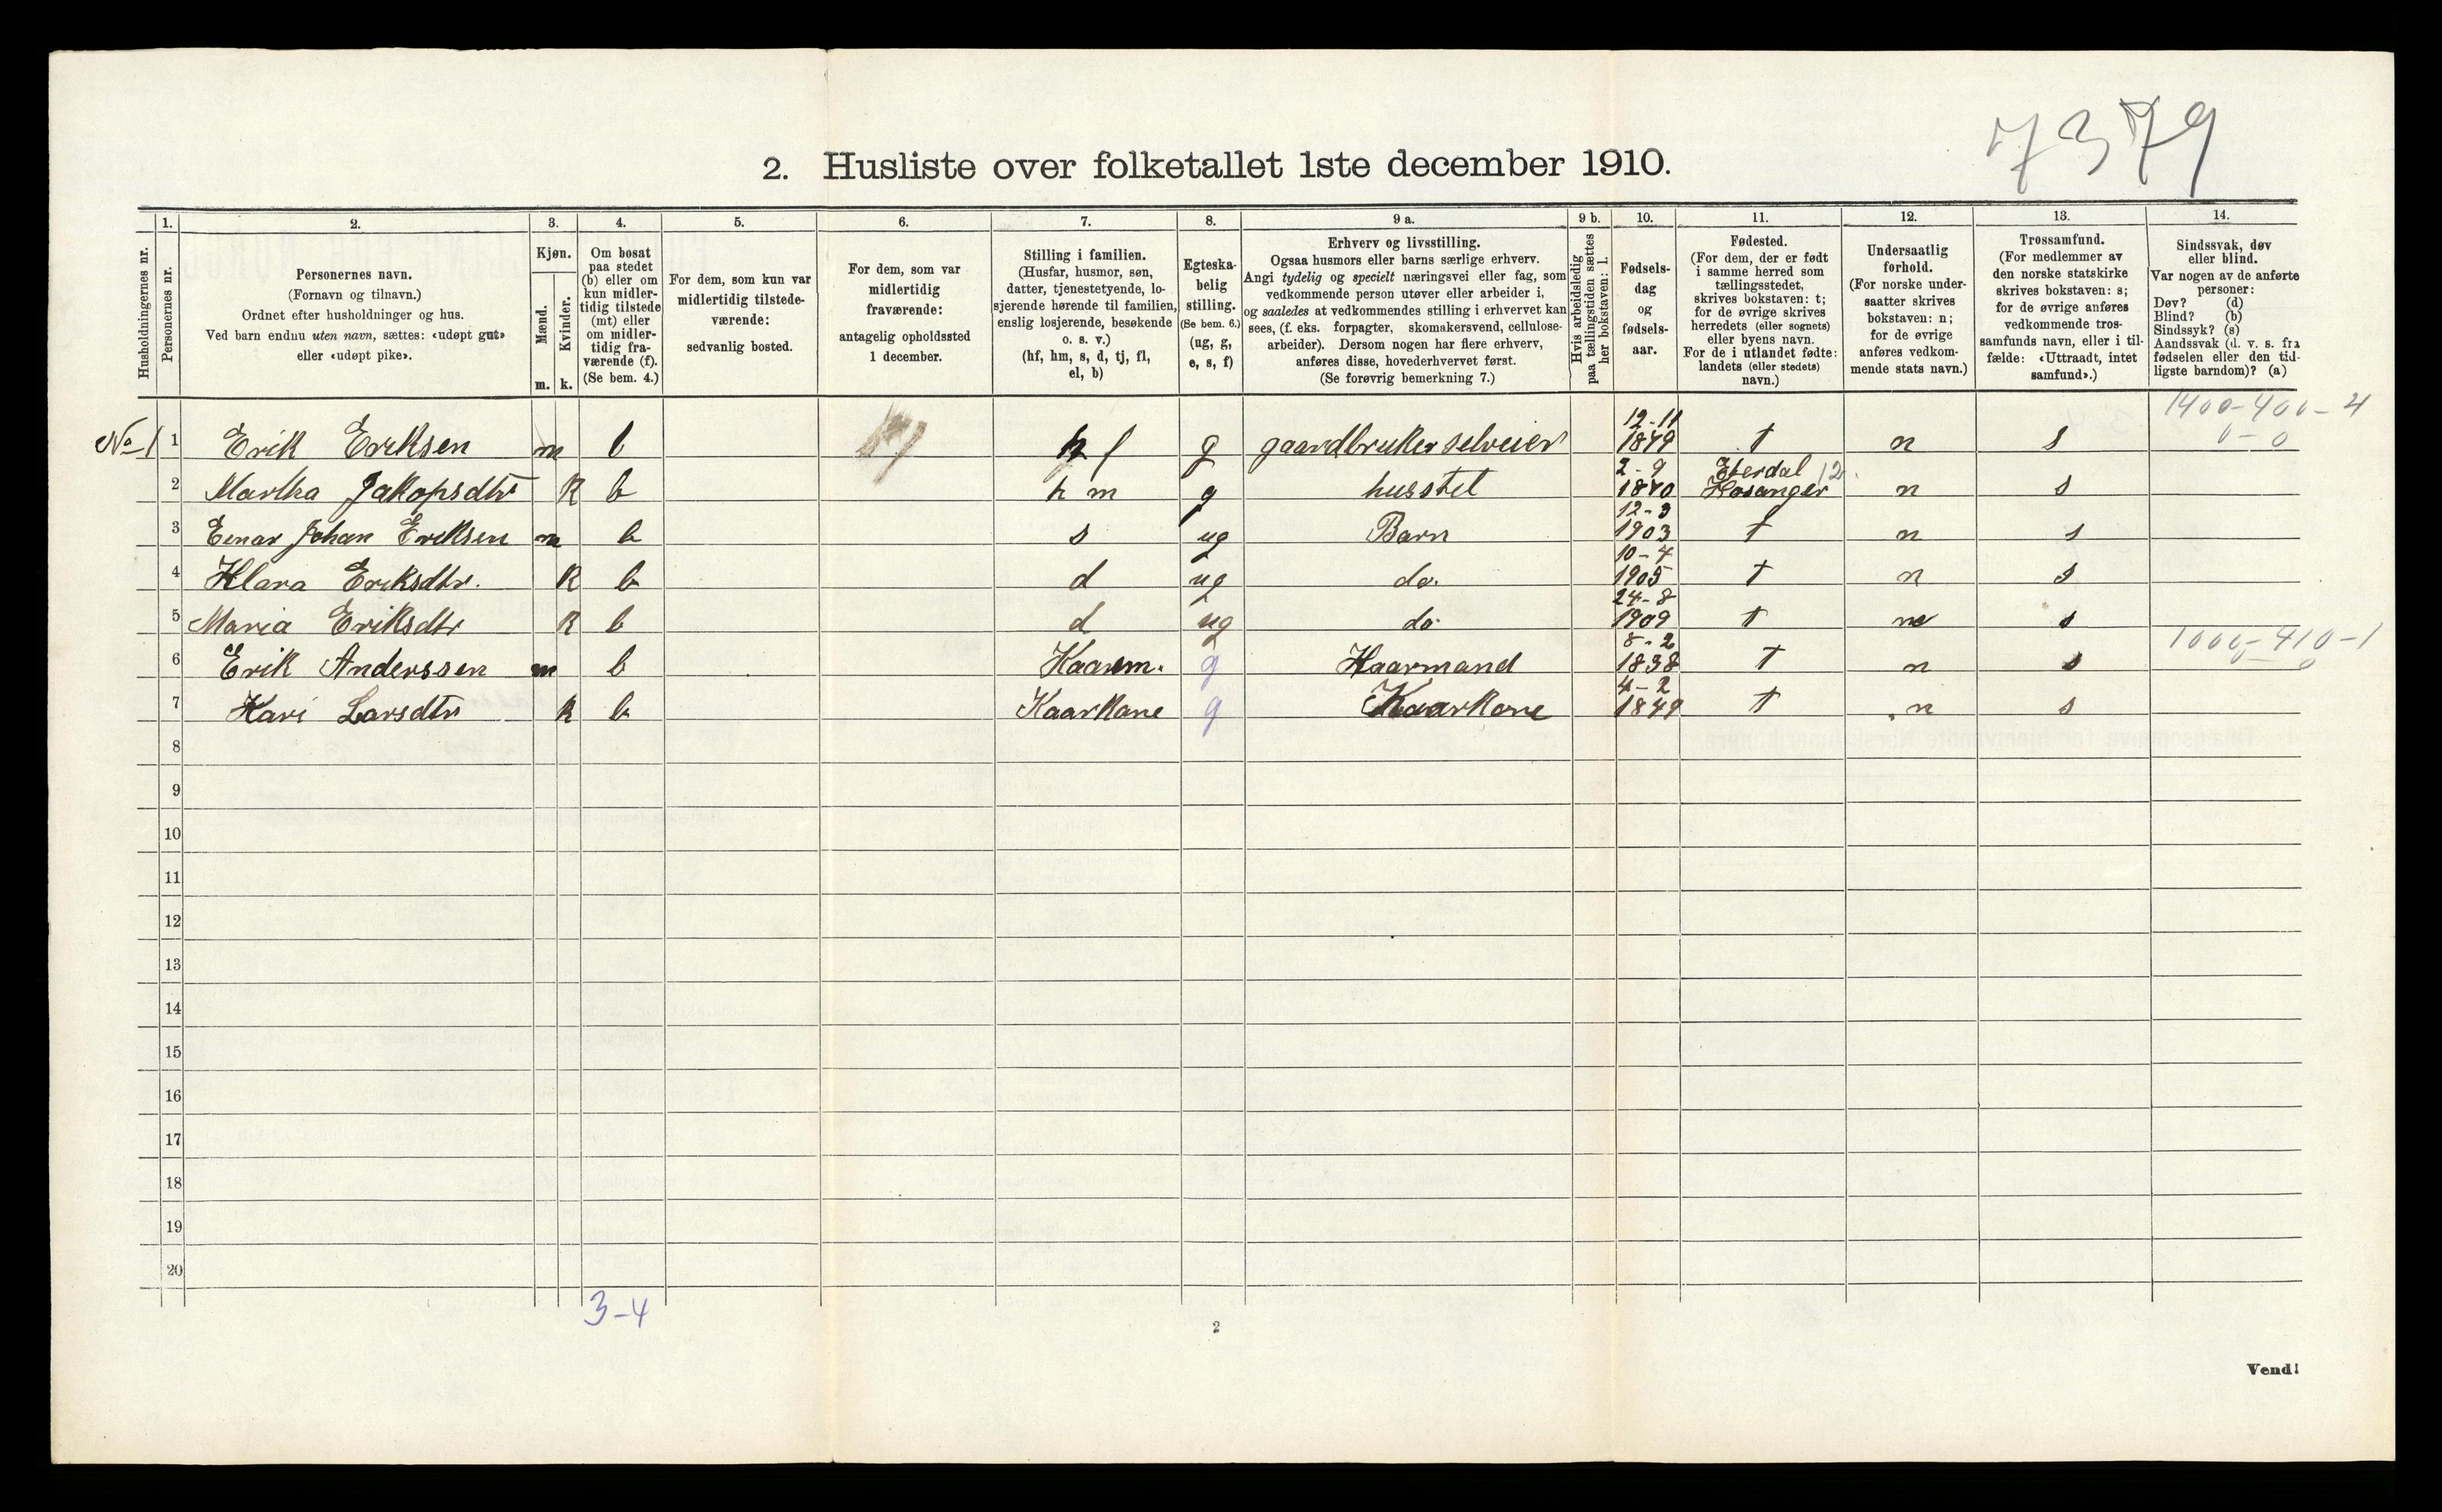 7379
2. Husliste over folketallet 1ste december 1910.
Husholdningernes nr.
1.
Personernes nr.
2.
Personernes navn.
(Fornavn og tilnavn.)
Ordnet efter husholdninger og hus.
Ved barn endnu uten navn, sættes: «udøpt gut»
eller «udøpt pike».
3.
Kjøn.
Mænd.
Kvinder.
m. k.
4.
Om bosat
paa stedet
(b) eller om
kun midler-
tidig tilstede
(mt) eller
om midler-
tidig fra-
værende (f).
(Se bem. 4.)
5.
For dem, som kun var
midlertidig tilstede-
værende:
sedvanlig bosted.
6.
For dem, som var
midlertidig
fraværende:
antagelig opholdssted
1 december.
7.
Stilling i familien.
(Husfar, husmor, søn,
datter, tjenestetyende, lo-
sjerende hørende til familien,
enslig losjerende, besøkende
o. s. v.)
(hf, hm, s, d, tj, fl,
el, b)
8.
Egteska-
belig
stilling.
(Se bem. 6.)
(ug, g,
e, s, f)
9 a.
Erhverv og livsstilling.
Ogsaa husmors eller barns særlige erhverv.
Angi tydelig og specielt næringsvei eller fag, som
vedkommende person utøver eller arbeider i,
og saaledes at vedkommendes stilling i erhvervet kan
sees, (f. eks. forpagter, skomakersvend, cellulose-
arbeider). Dersom nogen har flere erhverv,
anføres disse, hovederhvervet først.
(Se forøvrig bemerkning 7.)
9 b.
Hvis arbeidsledig
paa tællingstiden sættes
her bokstaven: l.
10.
Fødsels-
dag
og
fødsels-
aar.
11.
Fødested.
(For dem, der er født
i samme herred som
tællingsstedet,
skrives bokstaven: t;
for de øvrige skrives
herredets (eller sognets)
eller byens navn.
For de i utlandet fødte:
landets (eller stedets)
navn.)
12.
Undersaatlig
forhold.
(For norske under-
saatter skrives
bokstaven: n;
for de øvrige
anføres vedkom-
mende stats navn.)
13.
Trossamfund.
(For medlemmer av
den norske statskirke
skrives bokstaven: s;
for de øvrige anføres
vedkommende tros-
samfunds navn, eller i til-
fælde: «Uttraadt, intet
samfund».)
14.
Sindssvak, døv
eller blind.
Var nogen av de anførte
personer:
Døv? (d)
Blind? (b)
Sindssyk? (s)
Aandssvak (d. v. s. fra
fødselen eller den tid-
ligste barndom)? (a)
1400-400-4
0-0
No 1 1 Erik Eriksen m b hf g gaardbruker selveier 12-11 1879 t n s
2 Martha Jakopsdtr k b hm g husstel 2-9 Hosanger n s
3 Einar Johan Eriksen m b s ug Barn 12-3 1903 t n s
4 Klara Eriksdtr. k b d ug do. 10-4 1905 t n s
5 Maria Eriksdtr k b d ug do. 24-8 1909 t n s
1000-410-1
6 Erik Anderssen m b Kaarm. g Kaarmand 8-2 1838 t n s
7 Kari Larsdtr k b Kaarkone g Kaarkone 4-2 1849 t n s
8
9
10
11
12
13
14
15
16
17
18
19
20
3-4
2
Vend!